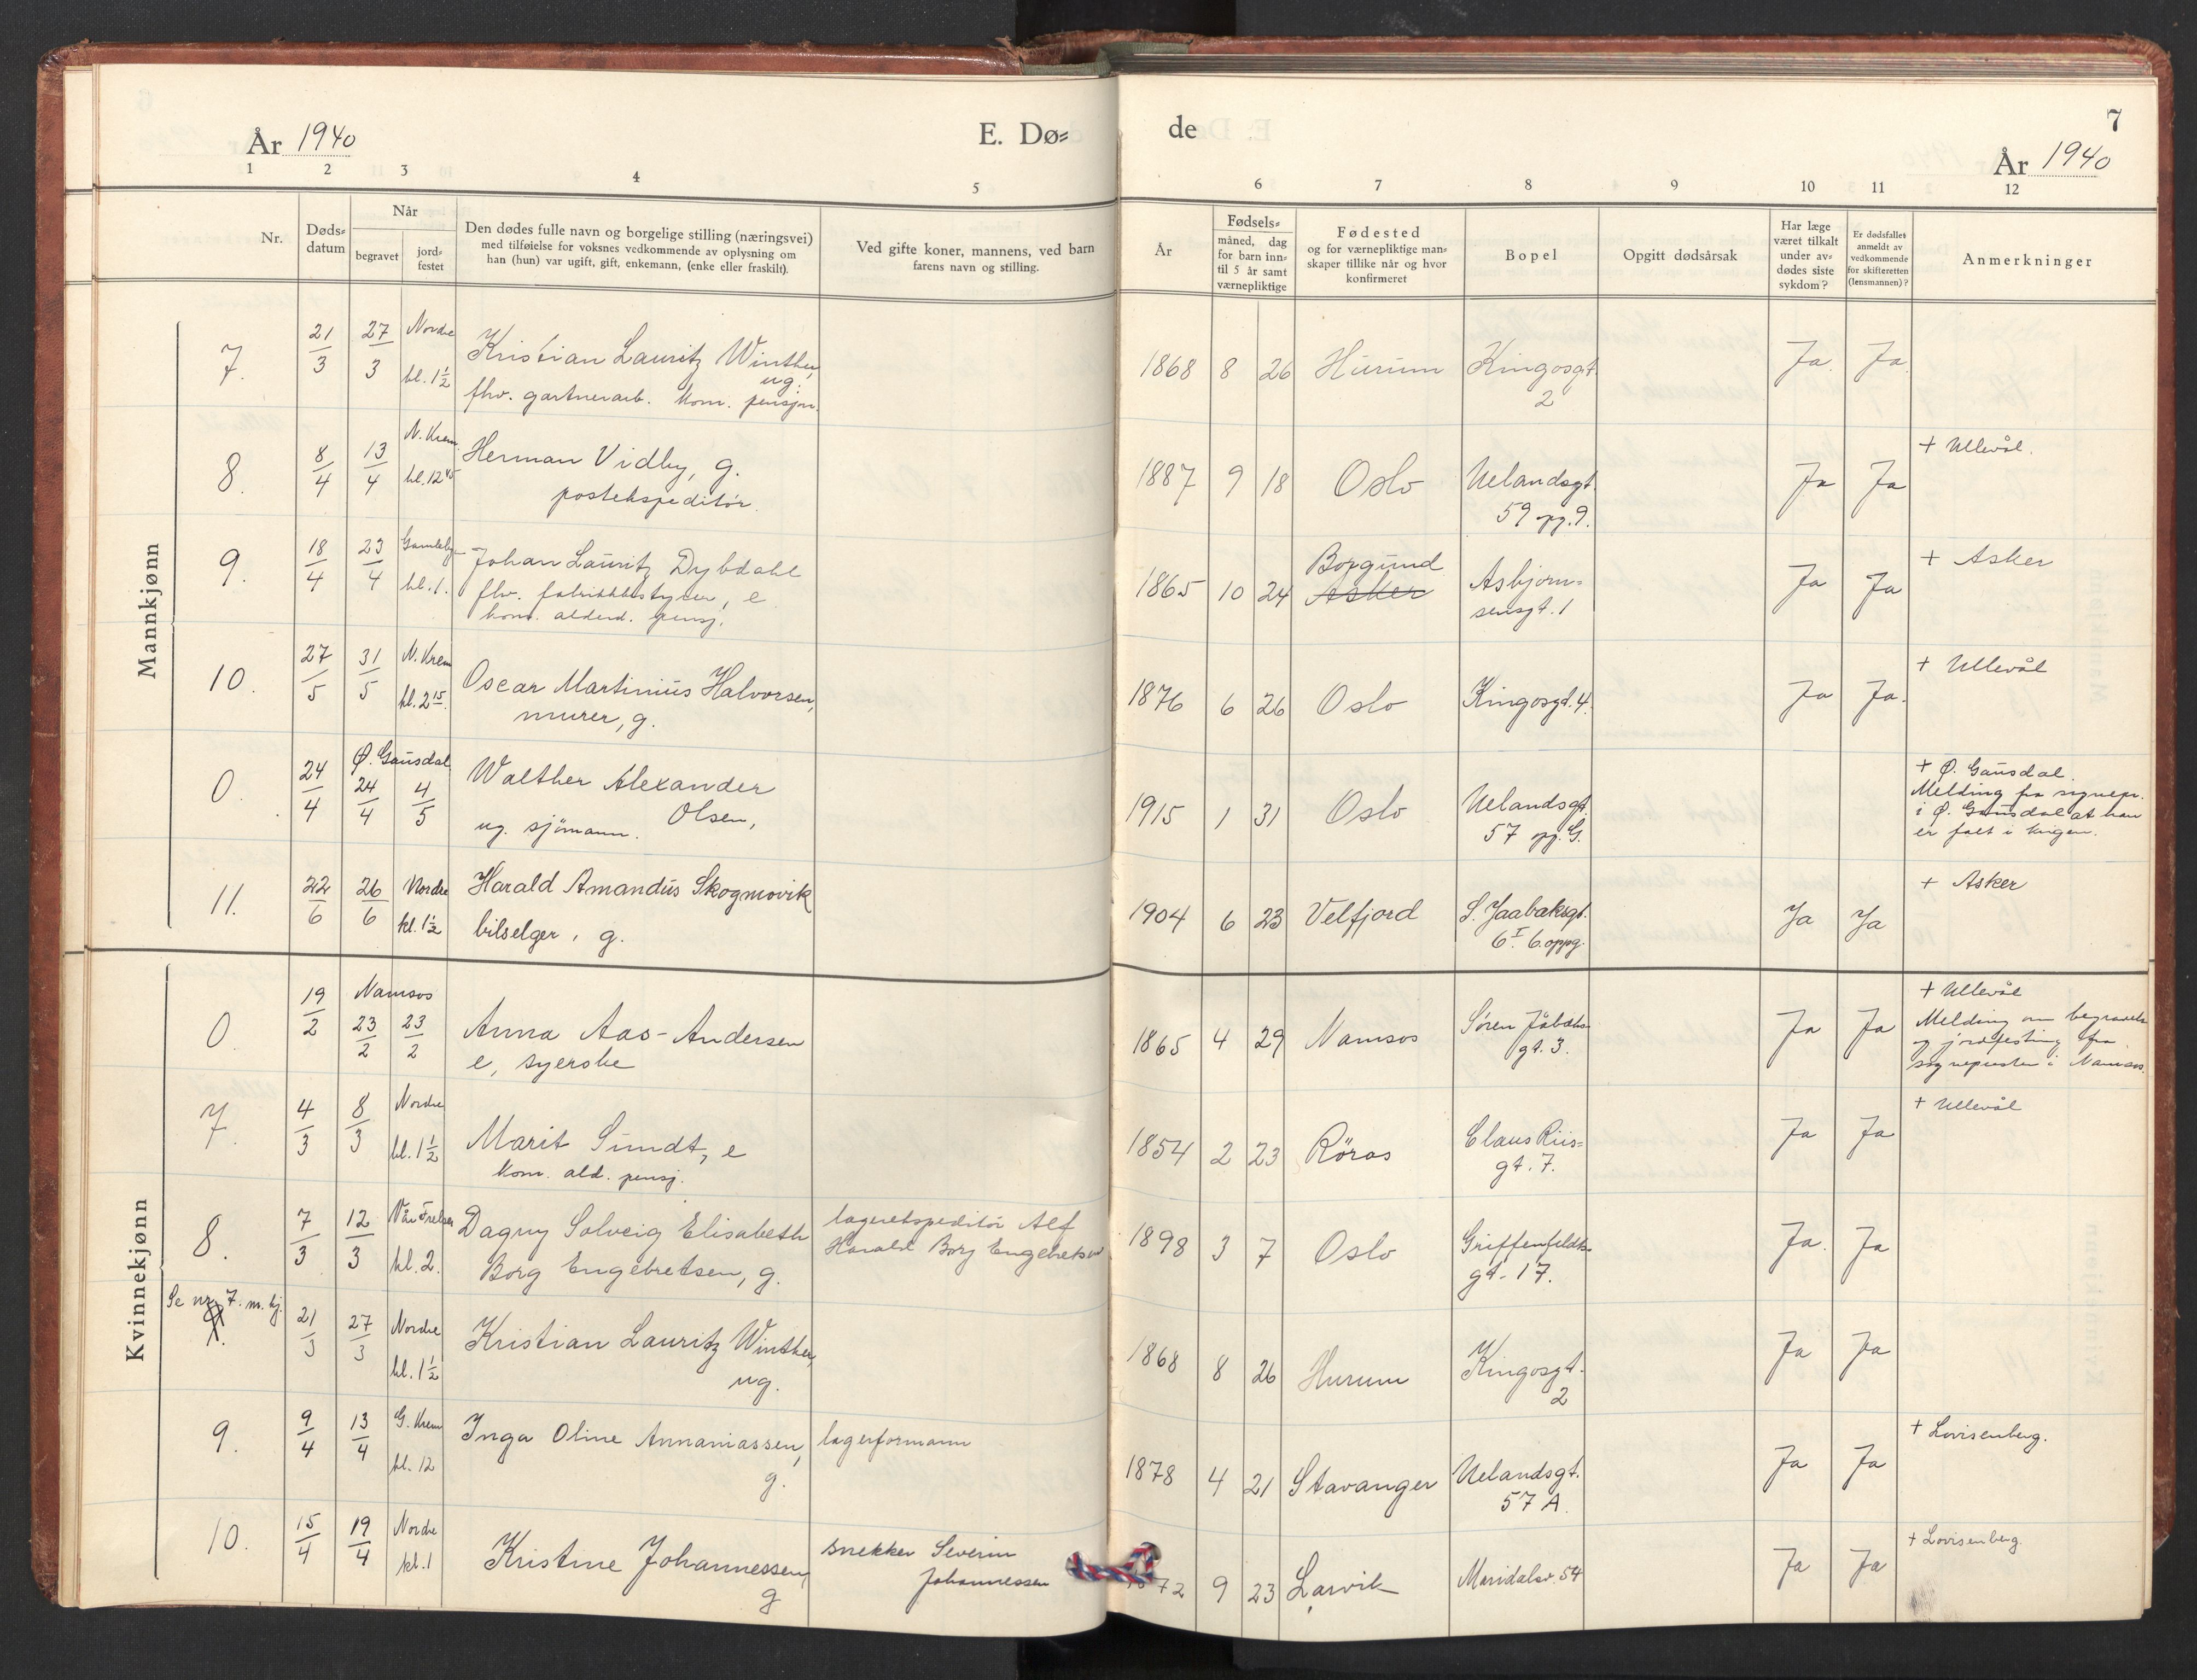 År 1940
E. Dø=
de
7
År 1940
1 2 3 4 5 6 7 8 9 10 11 12
Nr.
Døds=
datum
Når
begravet
jord=
festet
Den dødes fulle navn og borgelige stilling (næringsvei)
med tilføielse for voksnes vedkommende av oplysning om
han (hun) var ugift, gift, enkemann, (enke eller fraskilt).
Ved gifte koner, mannens, ved barn
farens navn og stilling.
År
Fødsels=
måned, dag
for barn inn=
til 5 år samt
værnepliktige
Fødested
og for værnepliktige man=
skaper tillike når og hvor
konfirmeret
Bopel
Opgitt dødsårsak
Har læge
været tilkalt
under av=
dødes siste
sykdom?
Er dødsfallet
anmeldt av
vedkommende
for skifteretten
(lensmannen)?
Anmerkninger
Mannkjønn
7. 21/3 27/3 Nordre kl. 1½
Kristian Lauritz Winther,
ug.
fhv. gartnerarb. kom. pensjon.
1868 8 26 Hurum Kingosgt.
2
Ja. Ja.
8. 8/4 13/4 N. Krem. kl. 12⁴⁵
Herman Vidby, g.
postekspeditör.
1887 9 18 Oslo Uelandsgt.
59 opg. 9.
Ja Ja
+ Ullevål.
9. 18/4 23/4 Gamleby kl. 1.
Johan Lauritz Dybdahl
fhv. fabrikkbestyrer, e
kom. alderd. pensj.
1865 10 24 Borgund
Asker
Asbjørn=
sensgt. 1
Ja Ja
+ Asker
10. 27/5 31/5 N. Krem kl. 2¹⁵.
Oscar Martinius Halvorsen,
murer, g.
1876 6 26 Oslo Kingosgt. 4.
Ja Ja.
+ Ullevål
0. 24/4 Ø. Gausdal 24/4 4/5
Walther Alexander
Olsen,
ug. sjömann.
1915 1 31 Oslo Uelandsgt.
57 opg. G.
+ Ø. Gausdal.
Melding fra sognepr.
i Ø. Gausdal at han
er falt i krigen.
11. 22/6 26/6 Nordre kl. 1½
Harald Amandus Skogmovik
bilselger, g.
1904 6 23 Velfjord S. Jaabæksgt.
6ᴵ 6. oppg.
Ja Ja
+ Asker
Kvinnekjønn
0. 19/2 Namsos 23/2 23/2
Anna Aas-Andersen
e, syerske
1865 4 29 Namsos Sören Jåbæks=
gt. 3.
Ja Ja
+ Ullevål
Melding om begravelse
og jordfesting fra
sognepresten i Namsos.
7. 4/3 8/3 Nordre kl. 1½
Marit Sundt, e
kom. ald. pensj.
1854 2 23 Röros Claus Riis=
gt. 7.
Ja Ja
+ Ullevål
8. 7/3 12/3 Vår Frelser kl. 2.
Dagny Solveig Elisabeth
Borg Engebretsen, g.
lagerekspeditör Alf
Harald Borg Engebretsen
1898 3 7 Oslo Griffenfeldts=
gt. 17.
Ja. Ja
Se nr. 7. m. kj.
9. 21/3 27/3 Nordre kl. 1½
Kristian Lauritz Winther,
ug.
1868 8 26 Hurum Kingosgt.
2
Ja Ja
9. 9/4 13/4 G. Krem kl. 12
Inga Oline Annaniassen,
g.
lagerformann
1878 4 21 Stavanger Uelandsgt.
57 A.
Ja Ja
+ Lovisenberg.
10. 15/4 19/4 Nordre kl. 1
Kristine Johannessen,
g
snekker Severin
Johannessen
72 9 23 Larvik Maridalsv. 54
Ja Ja
+ Lovisenberg.